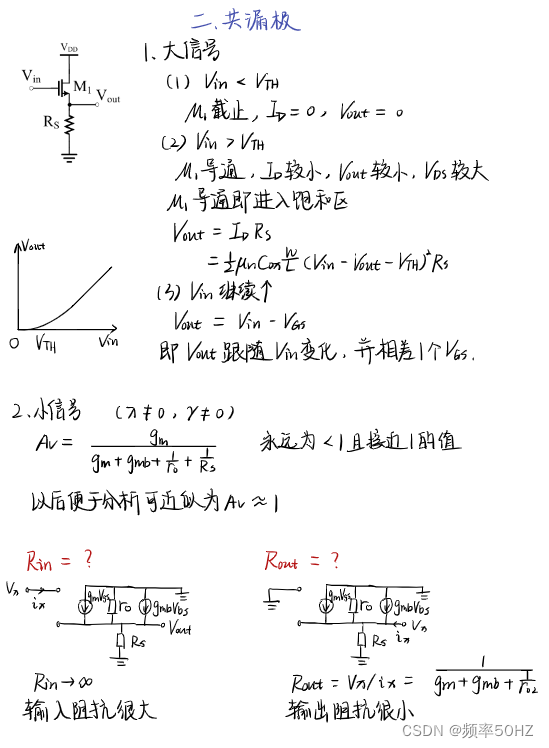 二、共漏极
V_DD
V_in
M_1
V_out
R_S
1、大信号
(1) Vin < V_TH
M_1截止, I_D = 0, Vout = 0
(2) Vin > V_TH
M_1导通, I_D较小, Vout较小, V_DS较大
M_1导通即进入饱和区
Vout = I_D R_S
= ½ μn Cox W/L (Vin - Vout - V_TH)² R_S
(3) Vin 继续↑
Vout = Vin - V_GS
即 Vout 跟随 Vin 变化, 并相差1个V_GS.
Vout
0 V_TH Vin
2、小信号 (λ≠0, γ≠0)
Av = gm / (gm + gmb + 1/ro + 1/Rs) 永远为<1且接近1的值
以后便于分析可近似为 Av ≈ 1
Rin = ?
Vx ix gmVgs ro gmbVbs
Vout
Rs
Rin → ∞
输入阻抗很大
Rout = ?
gmVgs ro gmbVbs
Vx
ix
Rs
Rout = Vx/ix = 1 / (gm + gmb + 1/ro2)
输出阻抗很小
CSDN @频率50HZ